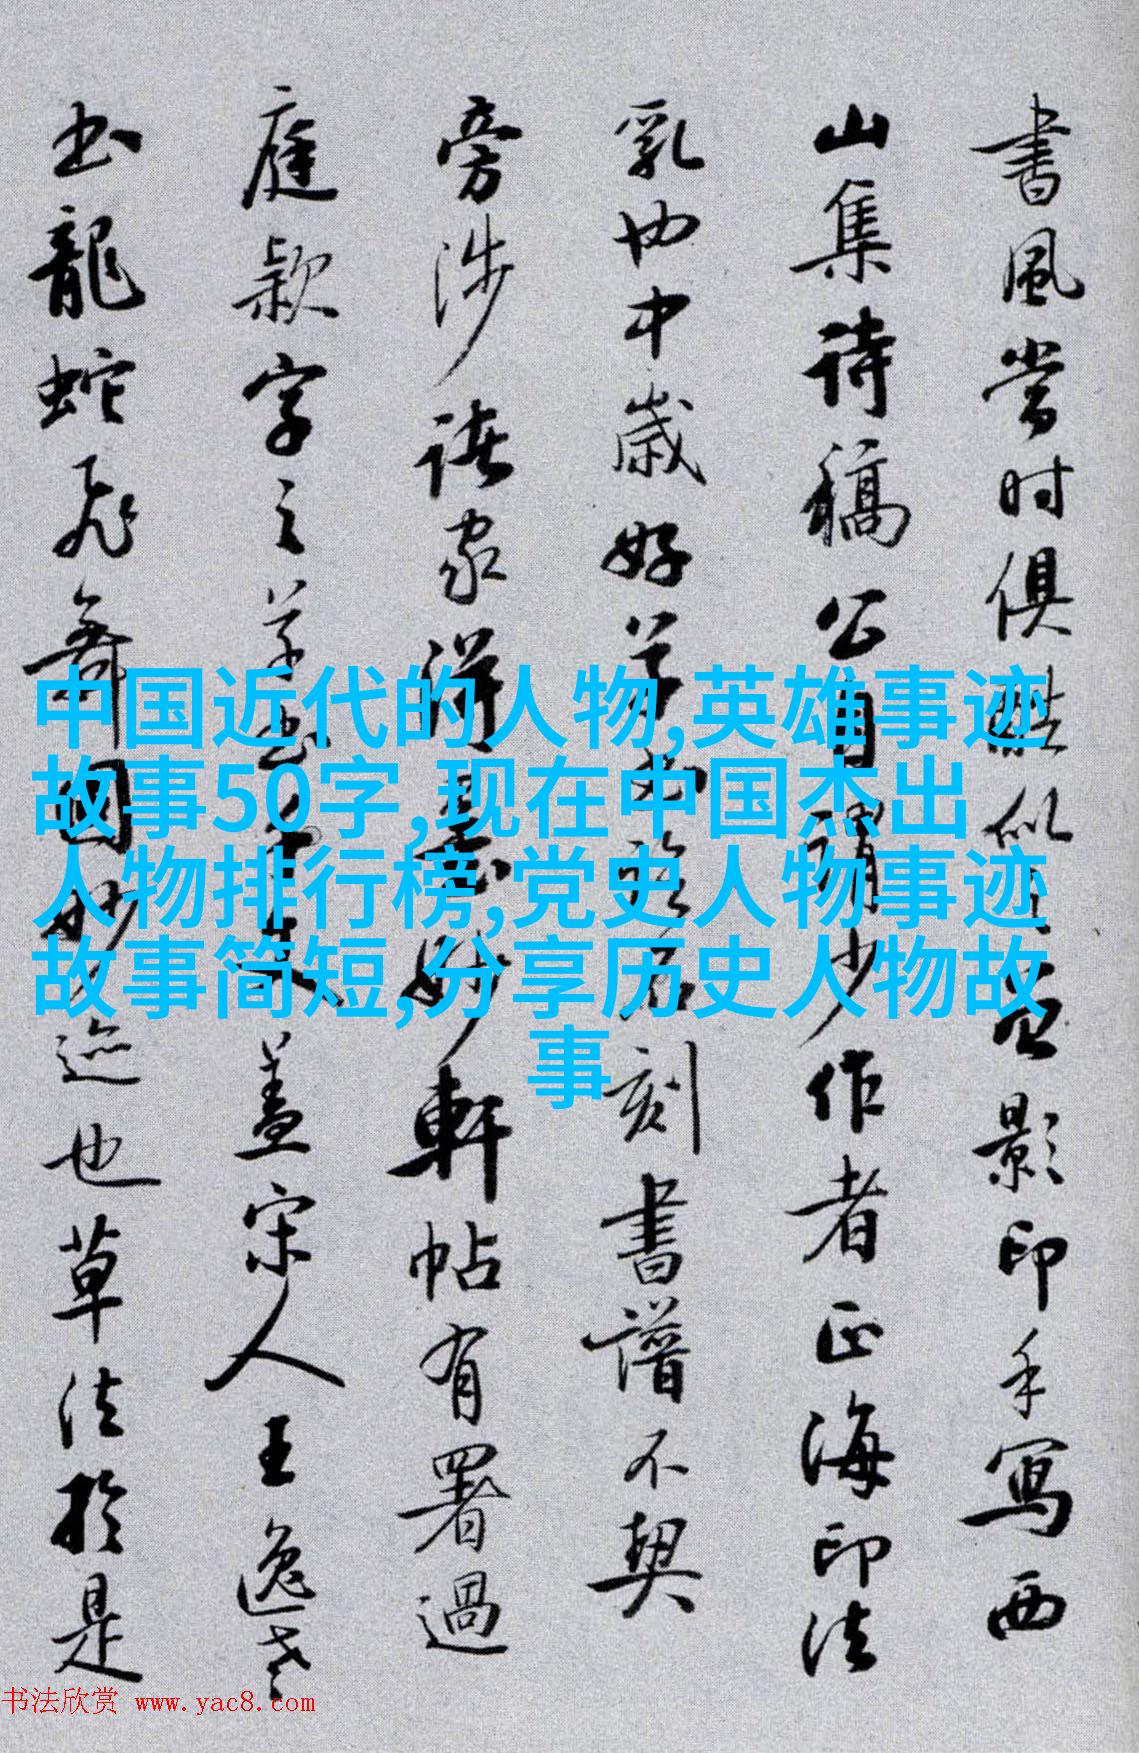 書風當时俱酷似
影印手寫西
山集诗稿公自謂少作者正海印法
乳也中歲好
刻書譜不契
旁涉诸家
妙軒帖有署過
庭款字之草書
蓋宋人王逸老
书龍蛇飛舞國妙迹也草法於是
中国近代的人物,英雄事迹
故事50字,现在中国杰出
人物排行榜,党史人物事迹
故事简短,分享历史人物故
事
书法欣赏 www.yac8.com